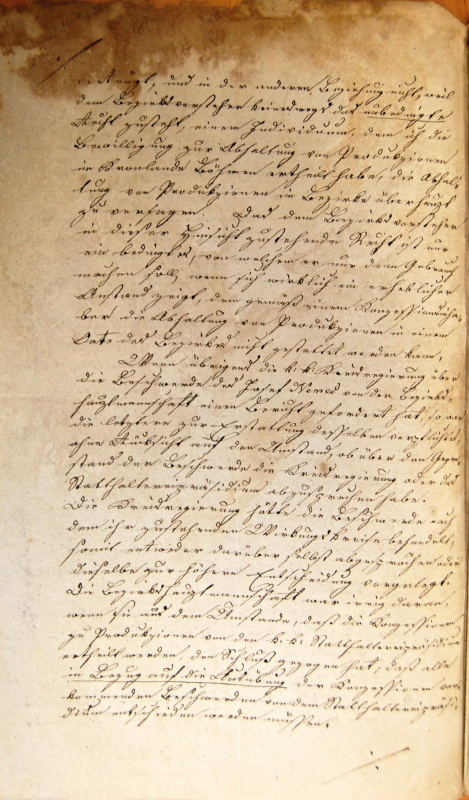 verträgt, und in der anderen Beziehung nicht, weil
dem Bezirksvorsteher keineswegs das unbedingte
Recht zusteht, einem Individuum, dem ich die
Bewilligung zur Abhaltung von Produkzionen
im Kronlande Böhmen ertheilt habe, die Abhal-
tung von Produkzionen im Bezirke überhaupt
zu versagen. Das dem Bezirksvorsteher
in dieser Hinsicht zustehende Recht ist nur
ein bedingtes, von welchem er nur dann Gebrauch
machen soll, wenn sich wirklich ein erheblicher
Anstand zeigt, dem gemäß einem Konzessionsinha-
ber die Abhaltung von Produkzionen in einem
Orte des Bezirkes nicht gestattet werden kann,
Wenn übrigens die k. k. Kreisregierung über
die Beschwerde des Josef Nemec von der Bezirks-
hauptmannschaft einen Bericht gefordert hat, so war
die letztere zur Erstattung desselben verpflichtet,
ohne Rücksicht auf den Umstand, ob über den Gegen-
stand der Beschwerde die Kreisregierung oder das
Statthaltereipräsidium abzusprechen habe.
Die Kreisregierung hätte die Beschwerde nach
dem ihr zustehenden Wirkungskreise behandelt,
somit entweder darüber selbst abgesprochen oder
dieselbe zur höhern Entscheidung vorgelegt.
Die Bezirkshauptmannschaft war irrig daran,
wenn sie aus dem Umstande, daß die Konzessionen
zu Produkzionen von dem k. k. Statthaltereipräsidium
ertheilt werden, den Schluß gezogen hat, daß alle
in Bezug auf die Ausübung der Konzessionen vor-
kommenden Beschwerden von dem Statthaltereipräsi-
dium entschieden werden müssen.